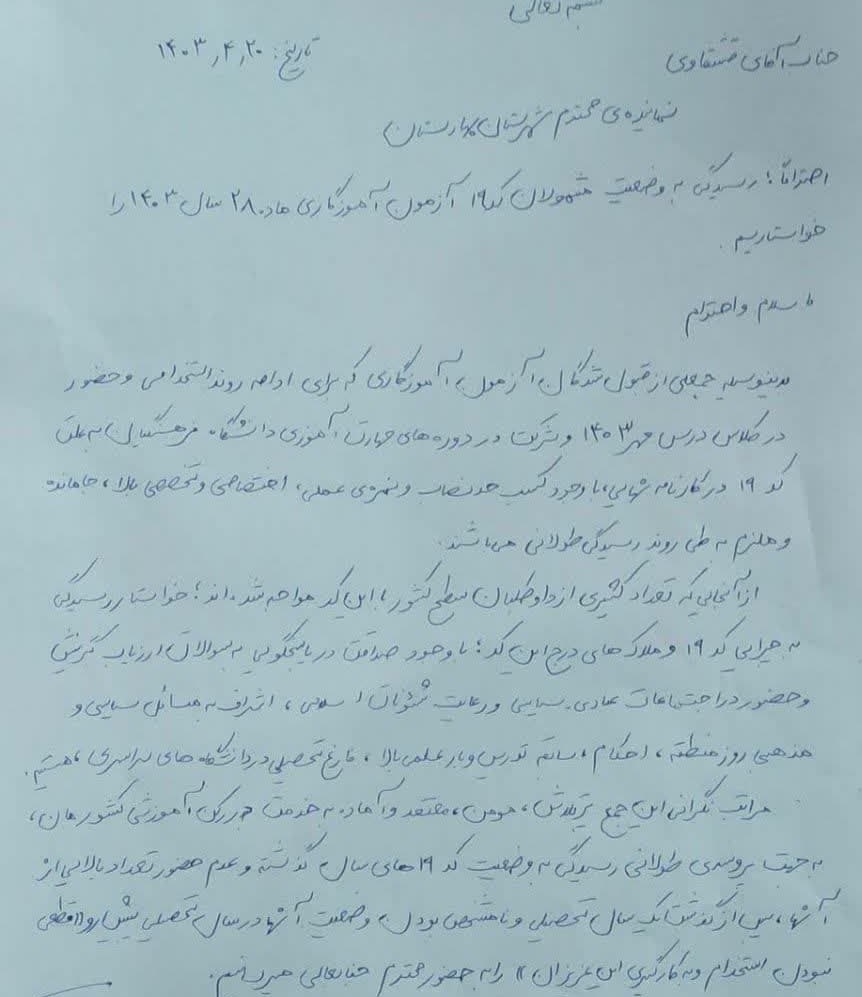 بسمه تعالی
جناب آقای قشقاوی
تاریخ: ۱۴۰۳,۴,۲۰
نماینده‌ی محترم شهرستان بهارستان
احتراماً؛ رسیدگی به وضعیت مشمولان کد ۱۹ آزمون آموزگاری ماده ۲۸ سال ۱۴۰۳ را
خواستاریم.
با سلام و احترام
بدینوسیله جمعی از قبول شدگان آزمون آموزگاری که برای ادامه روند استخدامی و حضور
در کلاس درس مهر ۱۴۰۳ و شرکت در دوره های مهارت آموزی دانشگاه فرهنگیان به علت
کد ۱۹ در کارنامه نهایی، با وجود کسب حدنصاب و نمره‌ی عملی، اختصاصی و تخصصی بالا، جامانده
و ملزم به طی روند رسیدگی طولانی می باشند.
از آنجایی که تعداد کثیری از داوطلبان سطح کشور با این کد مواجه شده اند؛ خواستار رسیدگی
به چرایی کد ۱۹ و ملاک های درج این کد؛ با وجود صداقت در پاسخگویی به سوالات ارزیاب گزینش
و حضور در اجتماعات عبادی سیاسی و رعایت شئونات اسلامی، اشراف به مسائل سیاسی و
مذهبی روز منطقه، احکام، سابقه تدریس و بار علمی بالا، فارغ تحصیلی در دانشگاه های سراسری، هستیم.
مراتب نگرانی این جمع پرتلاش، مومن، معتقد و آماده به خدمت در رکن آموزشی کشورمان،
به جهت پروسه‌ی طولانی رسیدگی به وضعیت کد ۱۹ های سال گذشته و عدم حضور تعداد بالایی از
آنها، پس از گذشت یک سال تحصیلی و نامشخص بودن وضعیت آنها در سال تحصیلی پیش رو «قطعی
نبودن استخدام و به کارگیری این عزیزان» را به حضور محترم جنابعالی میرسانیم.